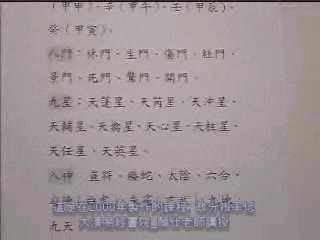 （甲申）、辛（甲午）、壬（甲辰）、
癸（甲寅）。
八門：休門、生門、傷門、杜門、
景門、死門、驚門、開門。
九星：天蓬星、天芮星、天沖星、
天輔星、天禽星、天心星、天柱星、
天任星、天英星。
八神 直符、螣蛇、太陰、六合、
九天
這是在2000年製作的課程, 故分辨率低
大漢易經書院 老師講授